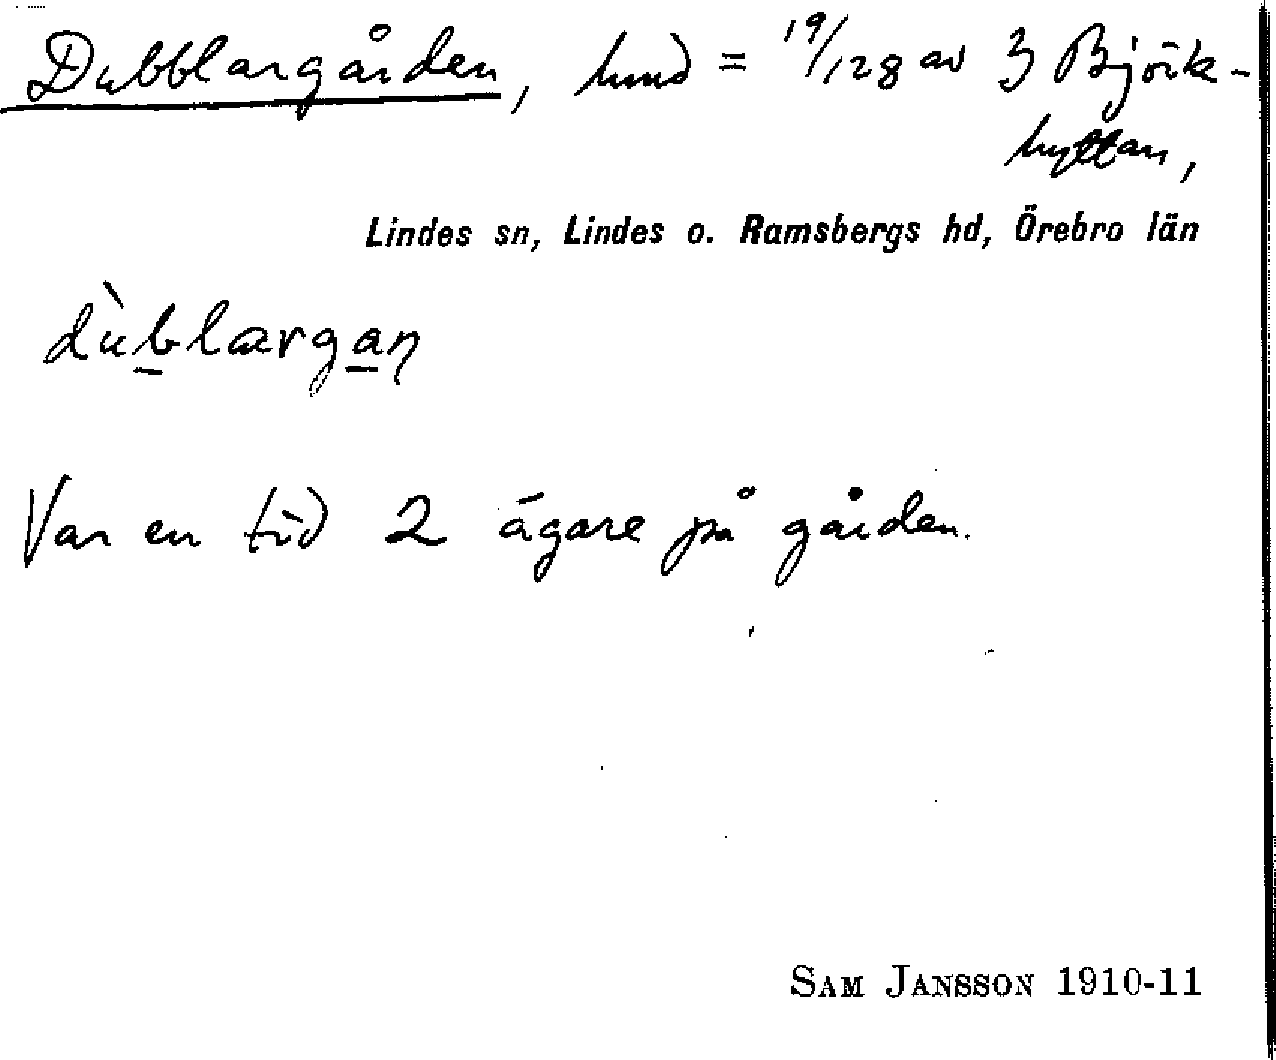 Dubblargården, hmd = 19/128 av 3 Björk-
hyttan,
Lindes sn, Lindes o. Ramsbergs hd, Örebro län
dùblærgaṇ
Var en tid 2 ägare på gården.
SAM JANSSON 1910-11